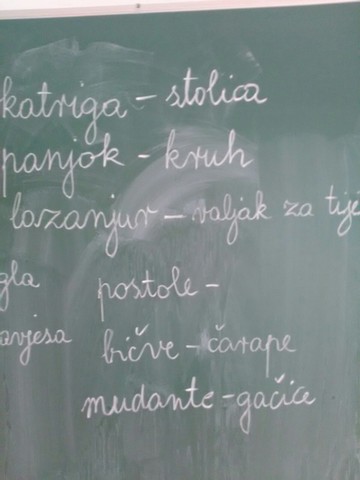 katriga - stolica
panjok - kruh
lazanjur - valjak za tije
gla postole -
avjesa bičve - čarape
mudante - gaćice